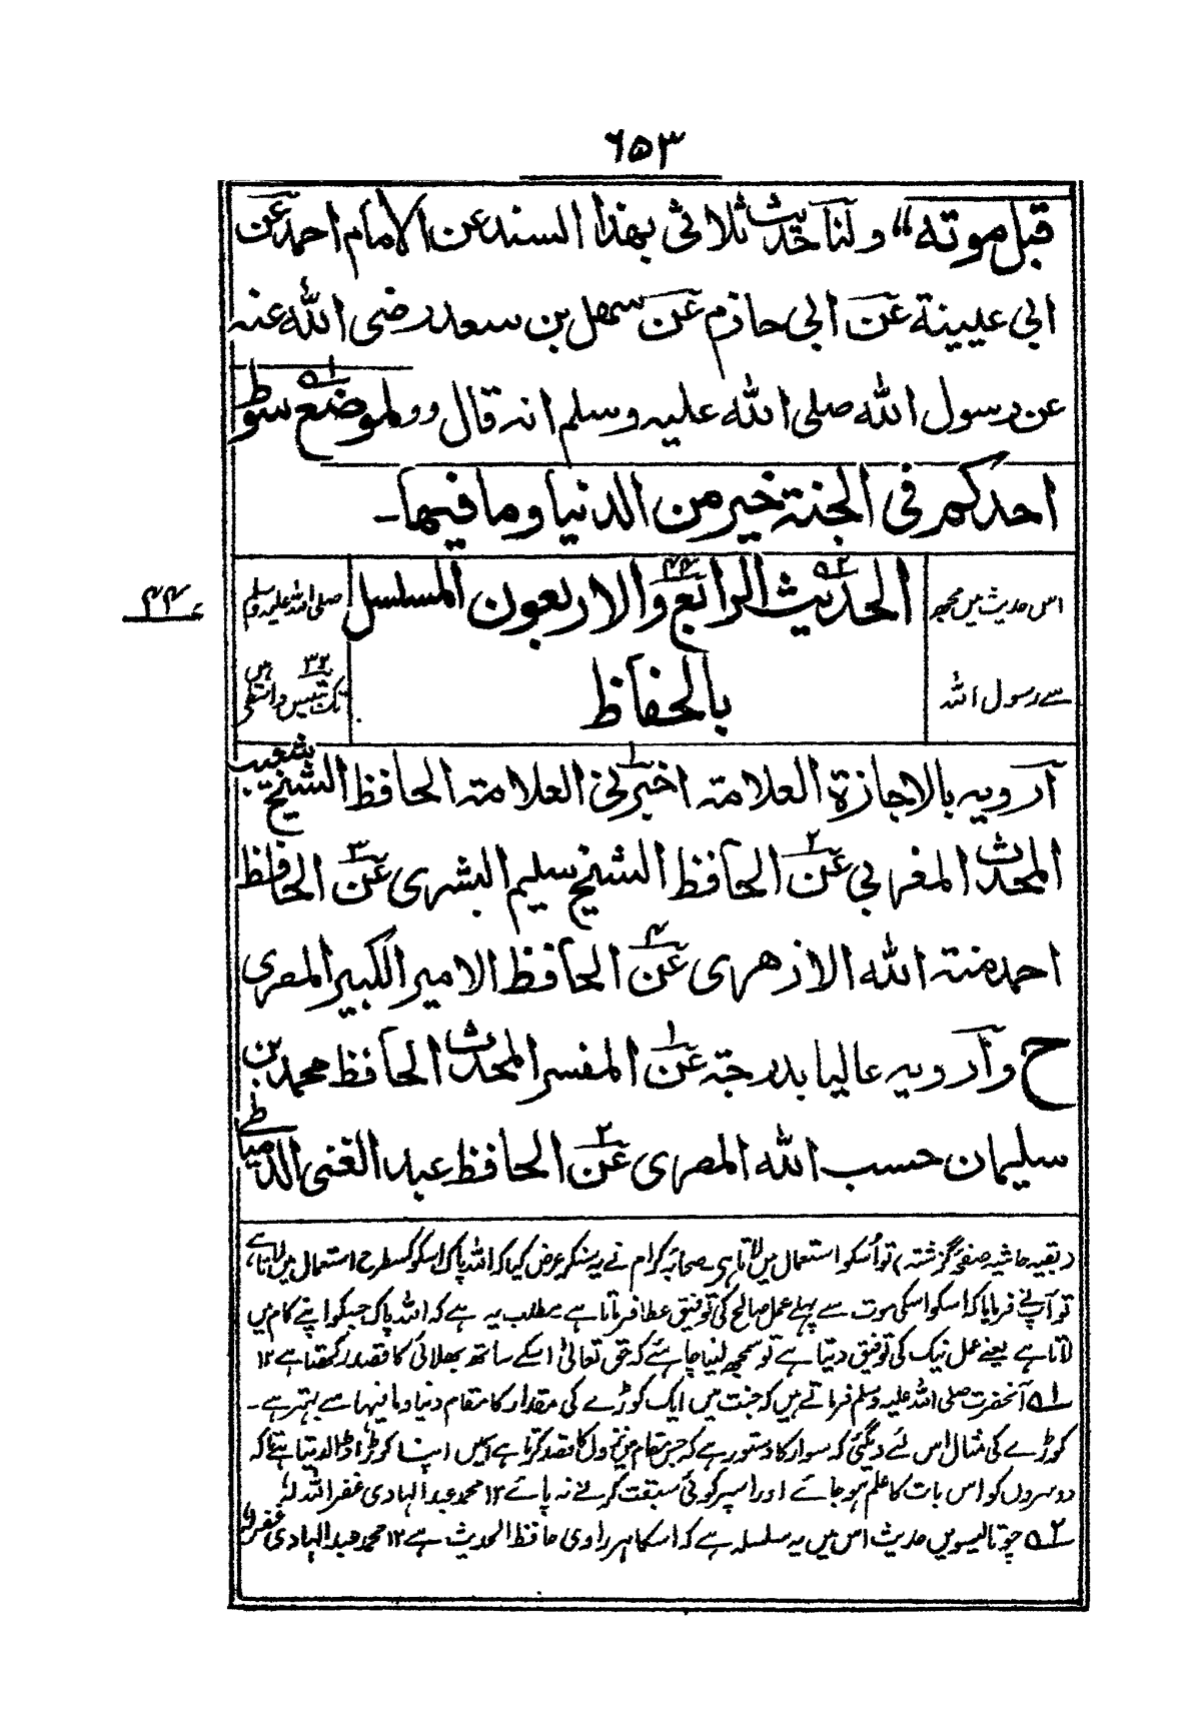 ۶۵۳
قبل موته“ ولنا حدیث ثلاثی بهذا السند عن الامام احمد عن
ابی عیینة عن ابی حازم عن سهل بن سعد رضی الله عنه
عن رسول الله صلی الله علیه وسلم انه قال وولموضع سوط
احدکم فی الجنة خیر من الدنیا وما فیها۔
الحدیث الرابع والاربعون المسلسل
بالحفاظ
اس حدیث میں مجھ
سے رسول اللہ
صلی اللہ علیہ وسلم
تک ۳۲
ہیں
۴۴
آرویه بالاجازة العلامة اخبرنی العلامة الحافظ الشیخ شعیب
المحدث المغربی عن الحافظ الشیخ سلیم البشری عن الحافظ
احمد منة الله الازهری عن الحافظ الامیر الکبیر المصری
ح وآرویه عالیا بدرجة عن المفسر المحدث الحافظ محمد بن
سلیمان حسب الله المصری عن الحافظ عبد الغنی الدمیاطی
(بقیہ حاشیہ صفحہ گزشتہ) تو اُسکو استعمال میں لاتا ہی۔ صحابہ کرام نے یہ سنکر عرض کیا کہ اللہ پاک اسکو کسطرح استعمال میں لاتا ہے،
تو آپنے فرمایا کہ اسکو اسکی موت سے پہلے عمل صالح کی توفیق عطا فرماتا ہے مطلب یہ ہے کہ اللہ پاک جسکو اپنے کام میں
لاتا ہے یعنے عمل نیک کی توفیق دیتا ہے تو سمجھ لینا چاہئے کہ حق تعالیٰ اسکے ساتھ بھلائی کا قصد رکھتا ہے ۱۲
۵۱ آنحضرت صلی اللہ علیہ وسلم فرماتے ہیں کہ جنت میں ایک کوڑے کی مقدار کا مقام دنیا و مافیہا سے بہتر ہے۔
کوڑے کی مثال اس لئے دیگئی کہ سوار کا دستور ہے کہ جس مقام میں نزول کا قصد کرتا ہے اسمیں اپنا کوڑا ڈالدیتا ہے تاکہ
دوسروں کو اس بات کا علم ہو جائے اور اسپر کوئی سبقت کرنے نہ پائے ۱۲ محمد عبد الہادی غفر اللہ لہٗ
۵۲ چوتالیسویں حدیث اس میں یہ سلسلہ ہے کہ اسکا ہر راوی حافظ الحدیث ہے ۱۲ محمد عبد الہادی غفرلہٗ